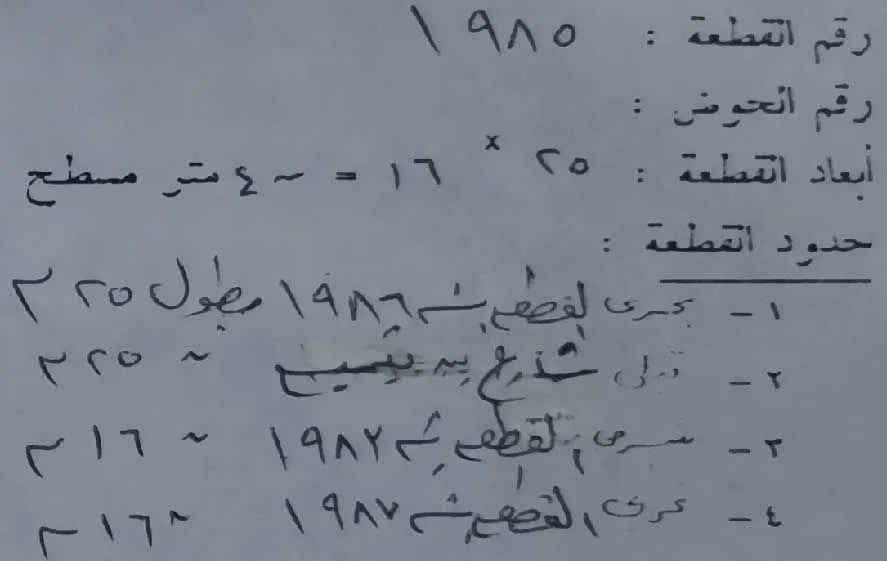 رقم القطعة : ١٩٨٥
رقم الحوض :
أبعاد القطعة : ٢٥ × ١٦ = ٤٠٠ متر مسطح
حدود القطعة :
١ - بحرى القطعة ١٩٨٦ بطول ٢٥ م
٢ - قبلى شارع ~ ٢٥ م
٣ - شرقى القطعة ١٩٨٢ ~ ١٦ م
٤ - غربى القطعة ١٩٨٧ ~ ١٦ م